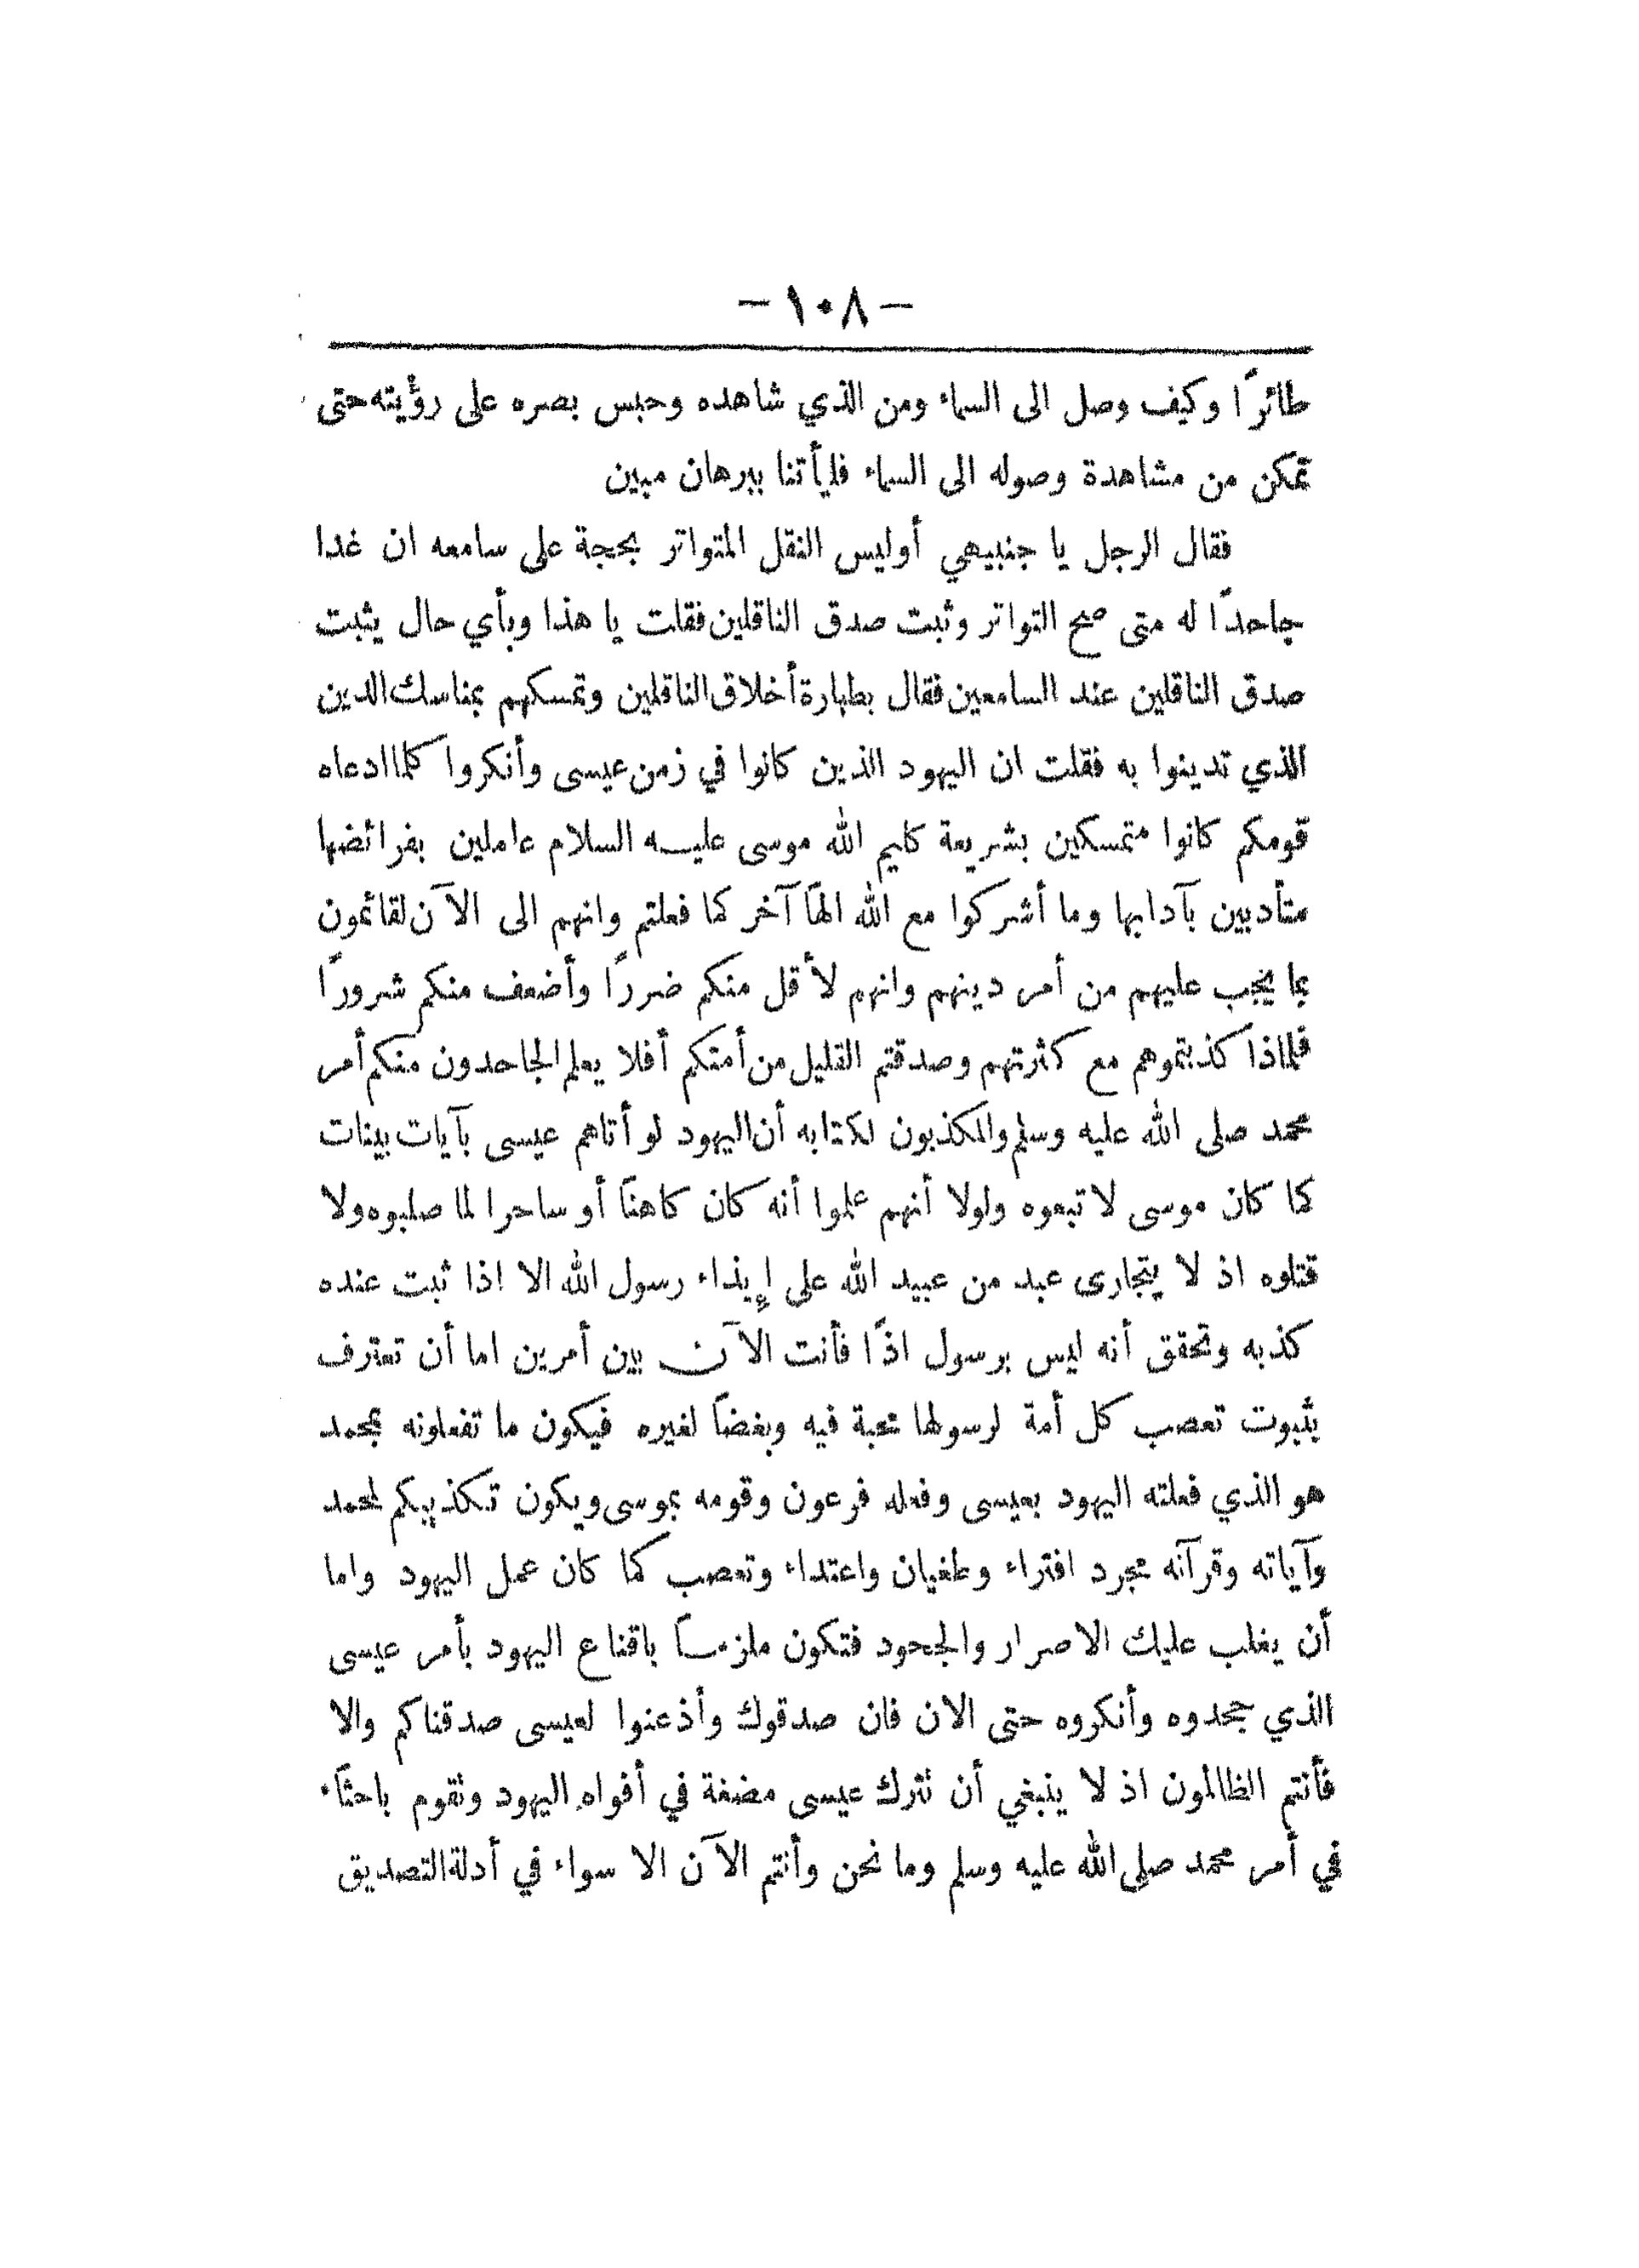 — ١٠٨ —
طائرًا وكيف وصل الى السماء ومن الذي شاهده وحبس بصره على رؤيته حتى
تمكن من مشاهدة وصوله الى السماء فليأتنا ببرهان مبين
فقال الرجل يا جنبيهي أوليس النقل المتواتر بحجة على سامعه ان غدا
جاحدًا له متى صح التواتر وثبت صدق الناقلين فقلت يا هذا وبأي حال يثبت
صدق الناقلين عند السامعين فقال بطهارة أخلاق الناقلين وتمسكهم بمناسك الدين
الذي تدينوا به فقلت ان اليهود الذين كانوا في زمن عيسى وأنكروا كلما ادعاه
قومكم كانوا متمسكين بشريعة كليم الله موسى عليه السلام عاملين بفرائضها
متأدبين بآدابها وما أشركوا مع الله الهًا آخر كما فعلتم وانهم الى الآن لقائمون
بما يجب عليهم من أمر دينهم وانهم لأقل منكم ضررًا وأضعف منكم شرورًا
فلماذا كذبتموهم مع كثرتهم وصدقتم القليل من أمتكم أفلا يعلم الجاحدون منكم أمر
محمد صلى الله عليه وسلم والمكذبون لكتابه أن اليهود لو أتاهم عيسى بآيات بينات
كما كان موسى لاتبعوه ولولا أنهم علموا أنه كان كاهنًا أو ساحرا لما صلبوه ولا
قتلوه اذ لا يتجارى عبد من عبيد الله على إيذاء رسول الله الا اذا ثبت عنده
كذبه وتحقق أنه ليس برسول اذًا فأنت الآن بين أمرين اما أن تعترف
بثبوت تعصب كل أمة لرسولها محبة فيه وبغضًا لغيره فيكون ما تفعلونه بمحمد
هو الذي فعلته اليهود بعيسى وفعله فرعون وقومه بموسى ويكون تكذيبكم لمحمد
وآياته وقرآنه مجرد افتراء وطغيان واعتداء وتعصب كما كان عمل اليهود واما
أن يغلب عليك الاصرار والجحود فتكون ملزمًا باقناع اليهود بأمر عيسى
الذي جحدوه وأنكروه حتى الان فان صدقوك وأذعنوا لعيسى صدقناكم والا
فأنتم الظالمون اذ لا ينبغي أن نترك عيسى مضغة في أفواه اليهود ونقوم باحثًاء
في أمر محمد صلى الله عليه وسلم وما نحن وأنتم الآن الا سواء في أدلة التصديق